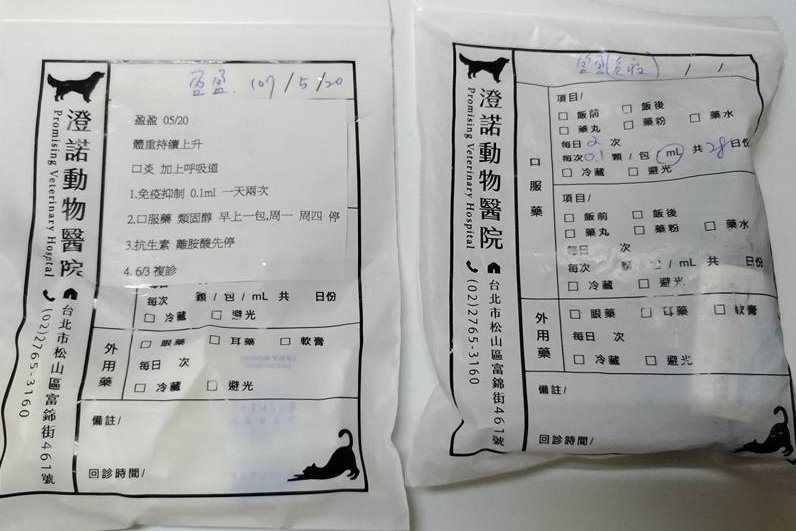 澄諾動物醫院
Promising Veterinary Hospital
台北市松山區富錦街461號
(02)2765-3160
盈盈 107/5/20
盈盈 05/20
體重持續上升
口炎 加上呼吸道
1.免疫抑制 0.1ml 一天兩次
2.口服藥 類固醇 早上一包,周一 周四 停
3.抗生素 離胺酸先停
4. 6/3 複診
每日 次
每次 顆/包/mL 共 日份
□ 冷藏 □ 避光
外用藥
□ 眼藥 □ 耳藥 □ 軟膏
每日 次
□ 冷藏 □ 避光
備註/
回診時間/
澄諾動物醫院
Promising Veterinary Hospital
台北市松山區富錦街461號
(02)2765-3160
盈盈(免疫) / /
口服藥
項目/
□ 飯前 □ 飯後
□ 藥丸 □ 藥粉 □ 藥水
每日 2 次
每次 0.1 顆/包/mL 共 28 日份
□ 冷藏 □ 避光
項目/
□ 飯前 □ 飯後
□ 藥丸 □ 藥粉 □ 藥水
每日 次
每次 顆/包/mL 共 日份
□ 冷藏 □ 避光
外用藥
□ 眼藥 □ 耳藥 □ 軟膏
每日 次
□ 冷藏 □ 避光
備註/
回診時間/